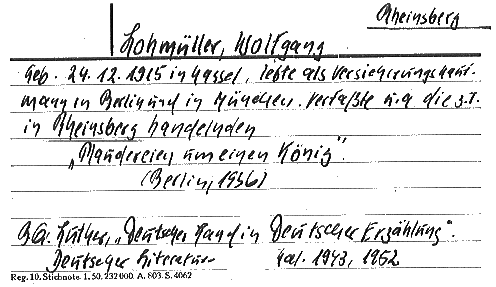 Rheinsberg
Lohmüller, Wolfgang
Geb. 24.12.1915 in Kassel, lebte als Versicherungskauf-
mann in Berlin und in München. Verfaßte u.a. die z.T.
in Rheinsberg handelnden
„Plaudereien um einen König".
(Berlin, 1936)
Luther, „Deutsches Land in Deutscher Erzählung".
Deutscher Literatur- Kal. 1943, 1952
Reg. 10. Stichnote. 1. 50. 232 000. A. 803. S. 4062